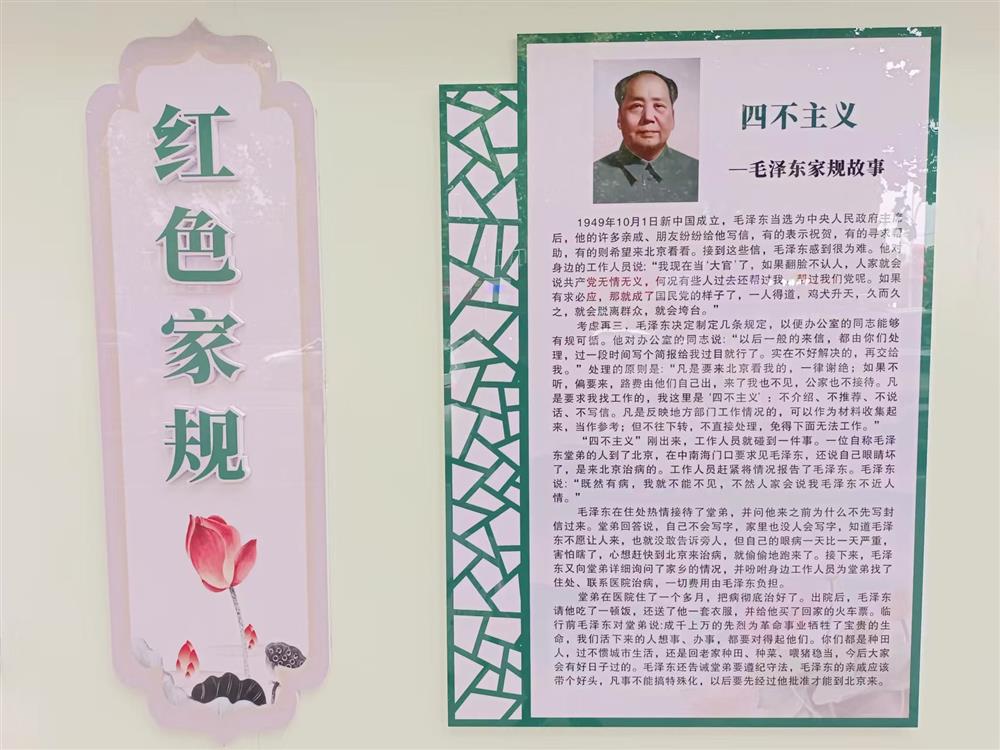 红色家规
四不主义
—毛泽东家规故事
1949年10月1日新中国成立，毛泽东当选为中央人民政府主席
后，他的许多亲戚、朋友纷纷给他写信，有的表示祝贺，有的寻求帮
助，有的则希望来北京看看。接到这些信，毛泽东感到很为难。他对
身边的工作人员说：“我现在当‘大官’了，如果翻脸不认人，人家就会
说共产党无情无义，何况有些人过去还帮过我，帮过我们党呢。如果
有求必应，那就成了国民党的样子了，一人得道，鸡犬升天，久而久
之，就会脱离群众，就会垮台。”
考虑再三，毛泽东决定制定几条规定，以便办公室的同志能够
有规可循。他对办公室的同志说：“以后一般的来信，都由你们处
理，过一段时间写个简报给我过目就行了。实在不好解决的，再交给
我。”处理的原则是：“凡是要来北京看我的，一律谢绝；如果不
听，偏要来，路费由他们自己出，来了我也不见，公家也不接待。凡
是要求我找工作的，我这里是‘四不主义’：不介绍、不推荐、不说
话、不写信。凡是反映地方部门工作情况的，可以作为材料收集起
来，当作参考；但不往下转，不直接处理，免得下面无法工作。”
“四不主义”刚出来，工作人员就碰到一件事。一位自称毛泽
东堂弟的人到了北京，在中南海门口要求见毛泽东，还说自己眼睛坏
了，是来北京治病的。工作人员赶紧将情况报告了毛泽东。毛泽东
说：“既然有病，我就不能不见，不然人家会说我毛泽东不近人
情。”
毛泽东在住处热情接待了堂弟，并问他来之前为什么不先写封
信过来。堂弟回答说，自己不会写字，家里也没人会写字，知道毛泽
东不愿让人来，也就没敢告诉旁人，但自己的眼病一天比一天严重，
害怕瞎了，心想赶快到北京来治病，就偷偷地跑来了。接下来，毛泽
东又向堂弟详细询问了家乡的情况，并吩咐身边工作人员为堂弟找了
住处、联系医院治病，一切费用由毛泽东负担。
堂弟在医院住了一个多月，把病彻底治好了。出院后，毛泽东
请他吃了一顿饭，还送了他一套衣服，并给他买了回家的火车票。临
行前毛泽东对堂弟说:成千上万的先烈为革命事业牺牲了宝贵的生
命，我们活下来的人想事、办事，都要对得起他们。你们都是种田
人，过不惯城市生活，还是回老家种田、种菜、喂猪稳当，今后大家
会有好日子过的。毛泽东还告诫堂弟要遵纪守法，毛泽东的亲戚应该
带个好头，凡事不能搞特殊化，以后要先经过他批准才能到北京来。